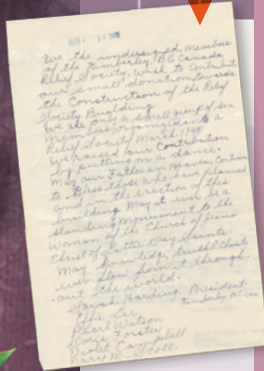 We the undersigned Members
of the Kimberley, B.C. Canada
Relief Society, wish to contribute
our small donation towards
the Construction of the Relief
Society Building
We are only a small group of
organized a
Relief Society March
We raised our Contribution
by putting on a dance.
May our Father in Heaven Continue
to Bless those who have planned
and in the erection of this
building May it ever be a
standing monument to the
Woman of the Church of Jesus
Christ of Latter Day Saints.
May knowledge truth & Charity
ever flow from it through-
out the world.
Sarah Harding President.
Kimberley B.C. Can
Lee
Pearl Watson
Doris Forster
Violet Campbell
Mary M. Scott.